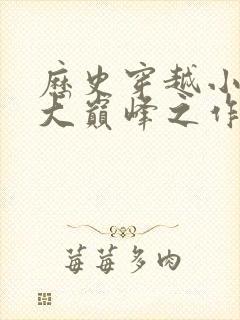 历史穿越小
大巅峰之作
莓莓多肉